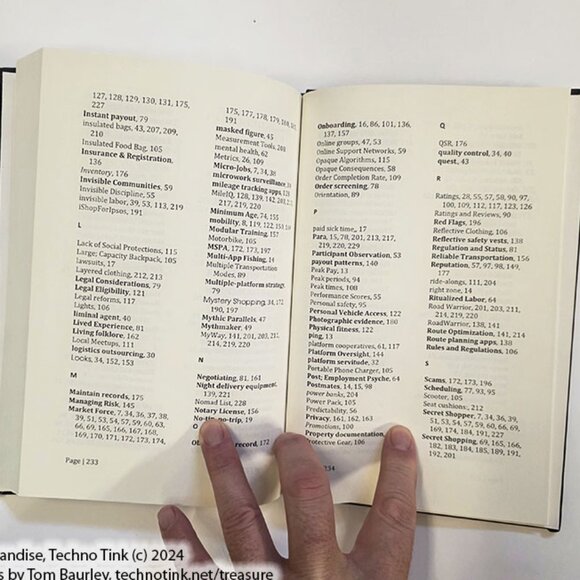 127, 128, 129, 130, 131, 175,
227
Instant payout, 79
insulated bags, 43, 207, 209,
210
Insulated Food Bag, 105
Insurance & Registration,
136
Inventory, 176
Invisible Communities, 59
Invisible Discipline, 55
invisible labor, 39, 53, 113, 219
iShopForIpsos, 191
L
Lack of Social Protections, 115
Large; Capacity Backpack, 105
Lawsuits, 17
Layered clothing, 212, 213
Legal Considerations, 79
Legal Eligibility, 121
Legal reforms, 117
Lights, 106
liminal agent, 40
Lived Experience, 81
Living folklore, 162
Local Meetups, 111
logistics outsourcing, 30
Looks, 34, 152, 153
M
Maintain records, 175
Managing Risk, 145
Market Force, 7, 34, 36, 37, 38,
39, 51, 53, 54, 57, 59, 60, 63,
66, 69, 165, 166, 167, 168,
169, 170, 171, 172, 173, 174,
Page | 233
175, 177, 178, 179, 180, 181,
191
masked figure, 45
Measurement Tools, 208
mental health, 62
Metrics, 26, 109
Micro-Jobs, 7, 34, 38
microwork surveillance,
mileage tracking apps, 128
MileIQ, 128, 139, 142, 201,
217, 219, 220
Minimum Age, 74, 155
mobility, 8, 119, 122, 153,
Modular Training, 157
Motorbike, 105
MSPA, 172, 173, 197
Multi-App Fishing, 14
Multiple Transportation
Modes, 89
Multiple-platform strategy
79
Mystery Shopping, 34, 172,
190, 197
Mythic Parallels, 47
Mythmaker, 49
MyWay, 141, 201, 203,
214, 219, 220
N
Negotiating, 81, 161
Night delivery equipment,
139, 221
Nomad List, 228
Notary License, 156
No-tip-no-trip, 19
O
record, 172
Onboarding, 16, 86, 101, 136,
137, 157
Online groups, 47, 53
Online Support Networks, 59
Opaque Algorithms, 115
Opaque Consequences, 58
Order Completion Rate, 109
Order screening, 78
Orientation, 89
P
paid sick time,, 17
Para, 15, 78, 201, 213, 217,
219, 220, 229
Participant Observation, 53
payout patterns, 140
Peak Pay, 13
Peak periods, 94
Peak times, 108
Performance Scores, 55
Personal safety, 95
Personal Vehicle Access, 122
Photographic evidence, 180
Physical fitness, 122
ping, 13
platform cooperatives, 61, 117
Platform Oversight, 144
platform servitude, 32
Portable Phone Charger, 105
Post; Employment Psyche, 64
Postmates, 14, 15, 98
power banks, 204
Power Pack, 105
Predictability, 56
Privacy, 161, 162, 163
Promotions, 100
Property documentation,
Protective Gear, 106
234
Q
QSR, 176
quality control, 34, 40
quest, 43
R
Ratings, 28, 55, 57, 58, 90, 97,
100, 109, 112, 117, 123, 126
Ratings and Reviews, 90
Red Flags, 196
Reflective Clothing, 106
Reflective safety vests, 138
Regulation and Status, 81
Reliable Transportation, 156
Reputation, 57, 97, 98, 149,
177
ride-alongs, 111, 204
right zone, 14
Ritualized Labor, 64
Road Warrior, 201, 203, 211,
214, 219, 220
RoadWarrior, 138, 141
Route Optimization, 141, 214
Route planning apps, 138
Rules and Regulations, 106
S
Scams, 172, 173, 196
Scheduling, 77, 93, 95
Scooter, 105
Seat cushions, 212
Secret Shopper, 7, 34, 36, 39,
51, 53, 54, 57, 59, 60, 66, 69,
169, 174, 184, 191, 227
Secret Shopping, 69, 165, 166,
182, 183, 184, 185, 189, 191,
192, 201
andise, Techno Tink (c) 2024
s by Tom Baurley, technotink.net/treasure